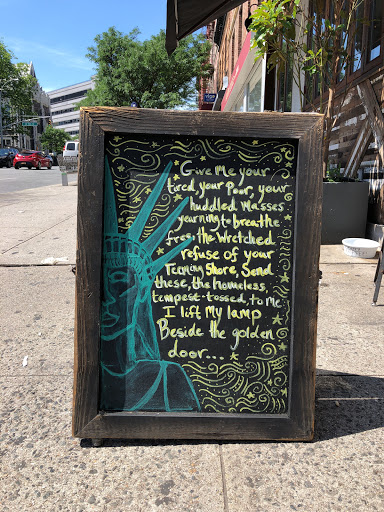 Give me your
tired, your poor, your
huddled masses
yearning to breathe
free, the wretched
refuse of your
Teeming shore, Send
these, the homeless,
tempest-tossed, to me
I lift my lamp
Beside the golden
door...